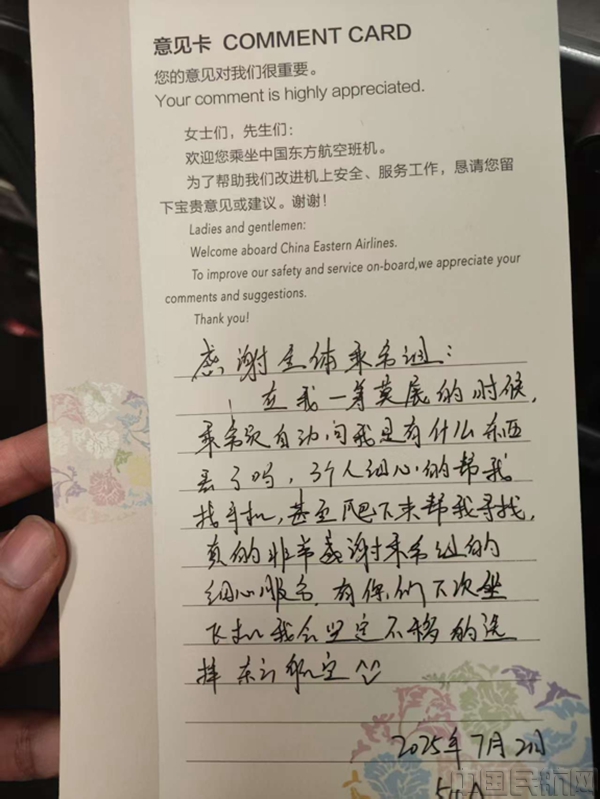 意见卡 COMMENT CARD
您的意见对我们很重要。
Your comment is highly appreciated.
女士们，先生们：
欢迎您乘坐中国东方航空班机。
为了帮助我们改进机上安全、服务工作，恳请您留
下宝贵意见或建议。谢谢！
Ladies and gentlemen:
Welcome aboard China Eastern Airlines.
To improve our safety and service on-board,we appreciate your
comments and suggestions.
Thank you!
感谢全体乘务组：
在我一筹莫展的时候，
乘务员自动问我是有什么东西
丢了吗，3个人细心的帮我
找手机，甚至爬下来帮我寻找，
真的非常感谢乘务组的
细心服务，有你们下次坐
飞机我会坚定不移的选
择东方航空
2025年7月2日
中国民航网